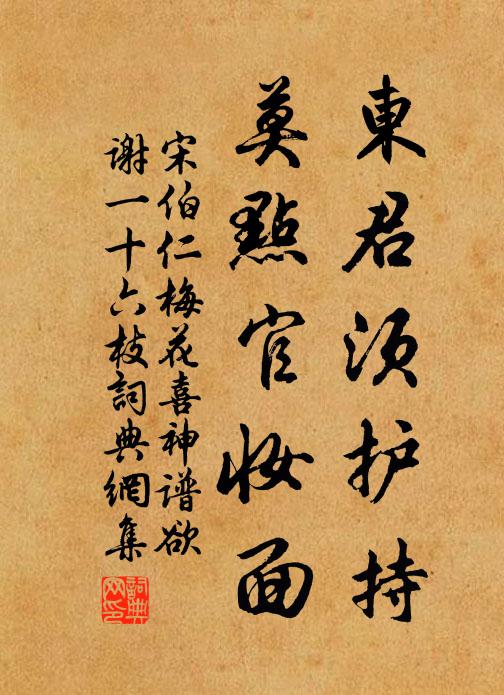 東君须护持
莫點官妝面
宋伯仁梅花喜神谱欲
谢一十六枝詞典網集
詞典网印